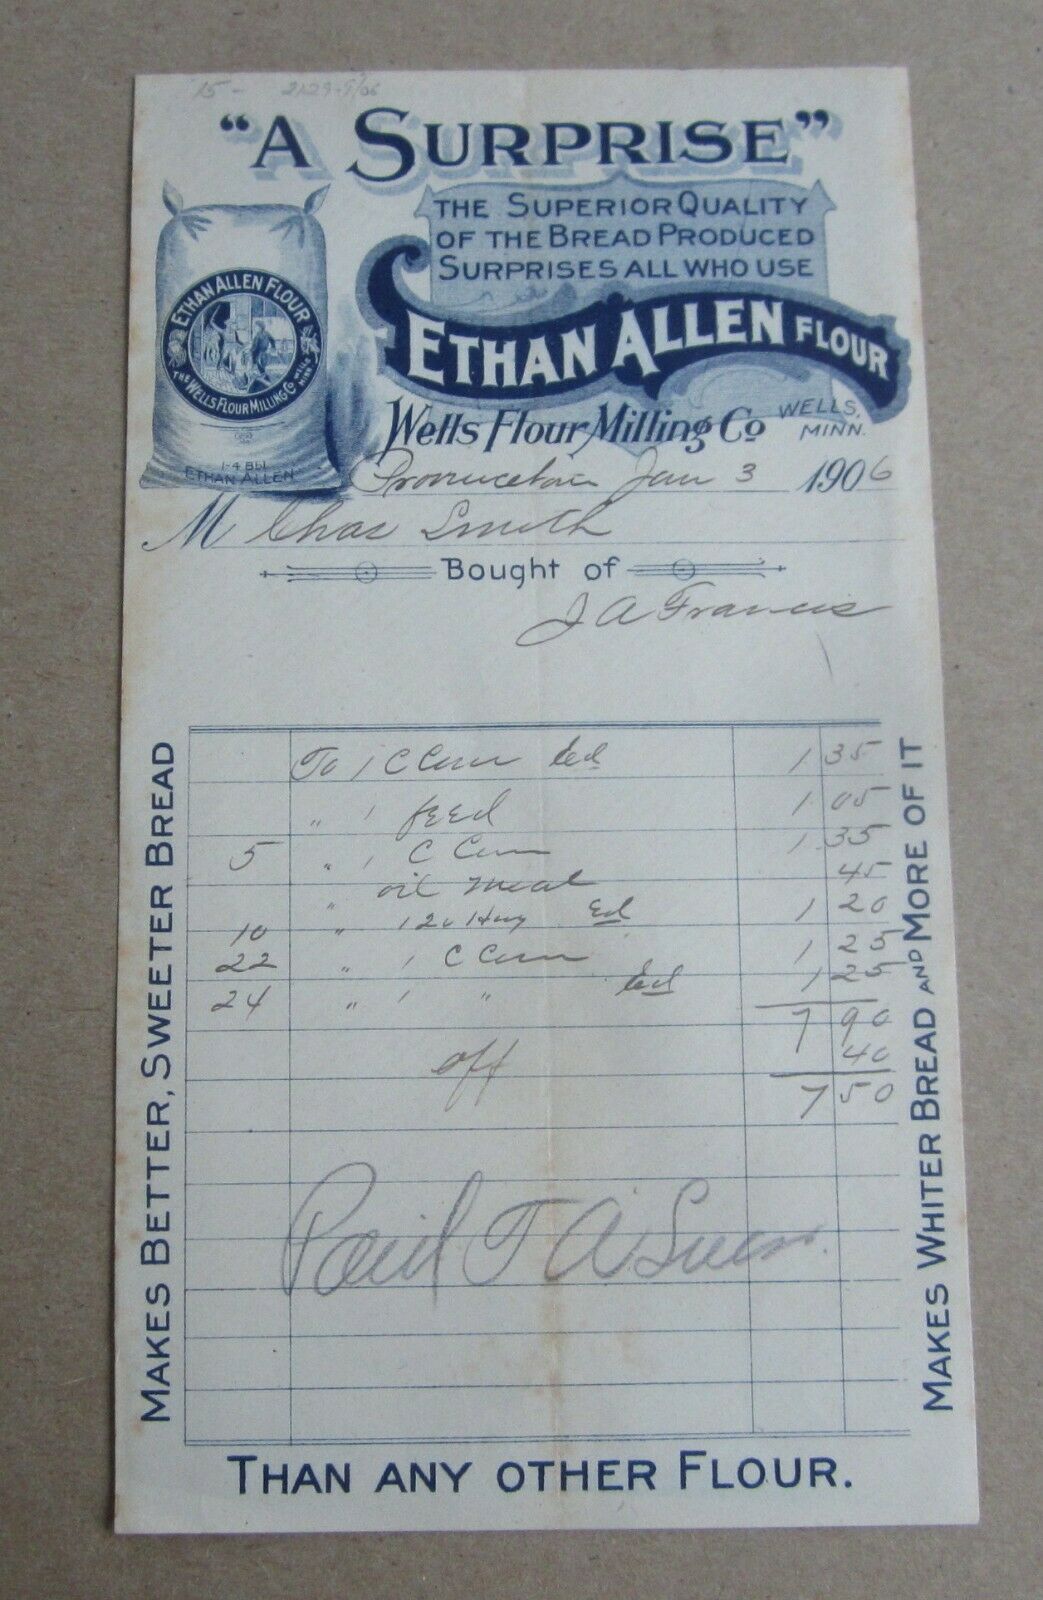 15-   2129-9/06
"A SURPRISE"
THE SUPERIOR QUALITY
OF THE BREAD PRODUCED
SURPRISES ALL WHO USE
ETHAN ALLEN FLOUR
Wells Flour Milling Co WELLS, MINN.
ETHAN ALLEN FLOUR
THE WELLS FLOUR MILLING CO WELLS MINN
1-4 BBL
ETHAN ALLEN
Provincetown Jan 3 1906
M Chas Smith
Bought of
J A Francis
To 1 C Corn Ed 1 35
" 1 feed 1 05
5 " 1 C Corn 1 35
" oil meal 45
10 " 120 Hay Ed 1 20
22 " 1 C Corn 1 25
24 " 1 " Ed 1 25
7 90
off 40
7 50
Paid
MAKES BETTER, SWEETER BREAD
MAKES WHITER BREAD AND MORE OF IT
THAN ANY OTHER FLOUR.